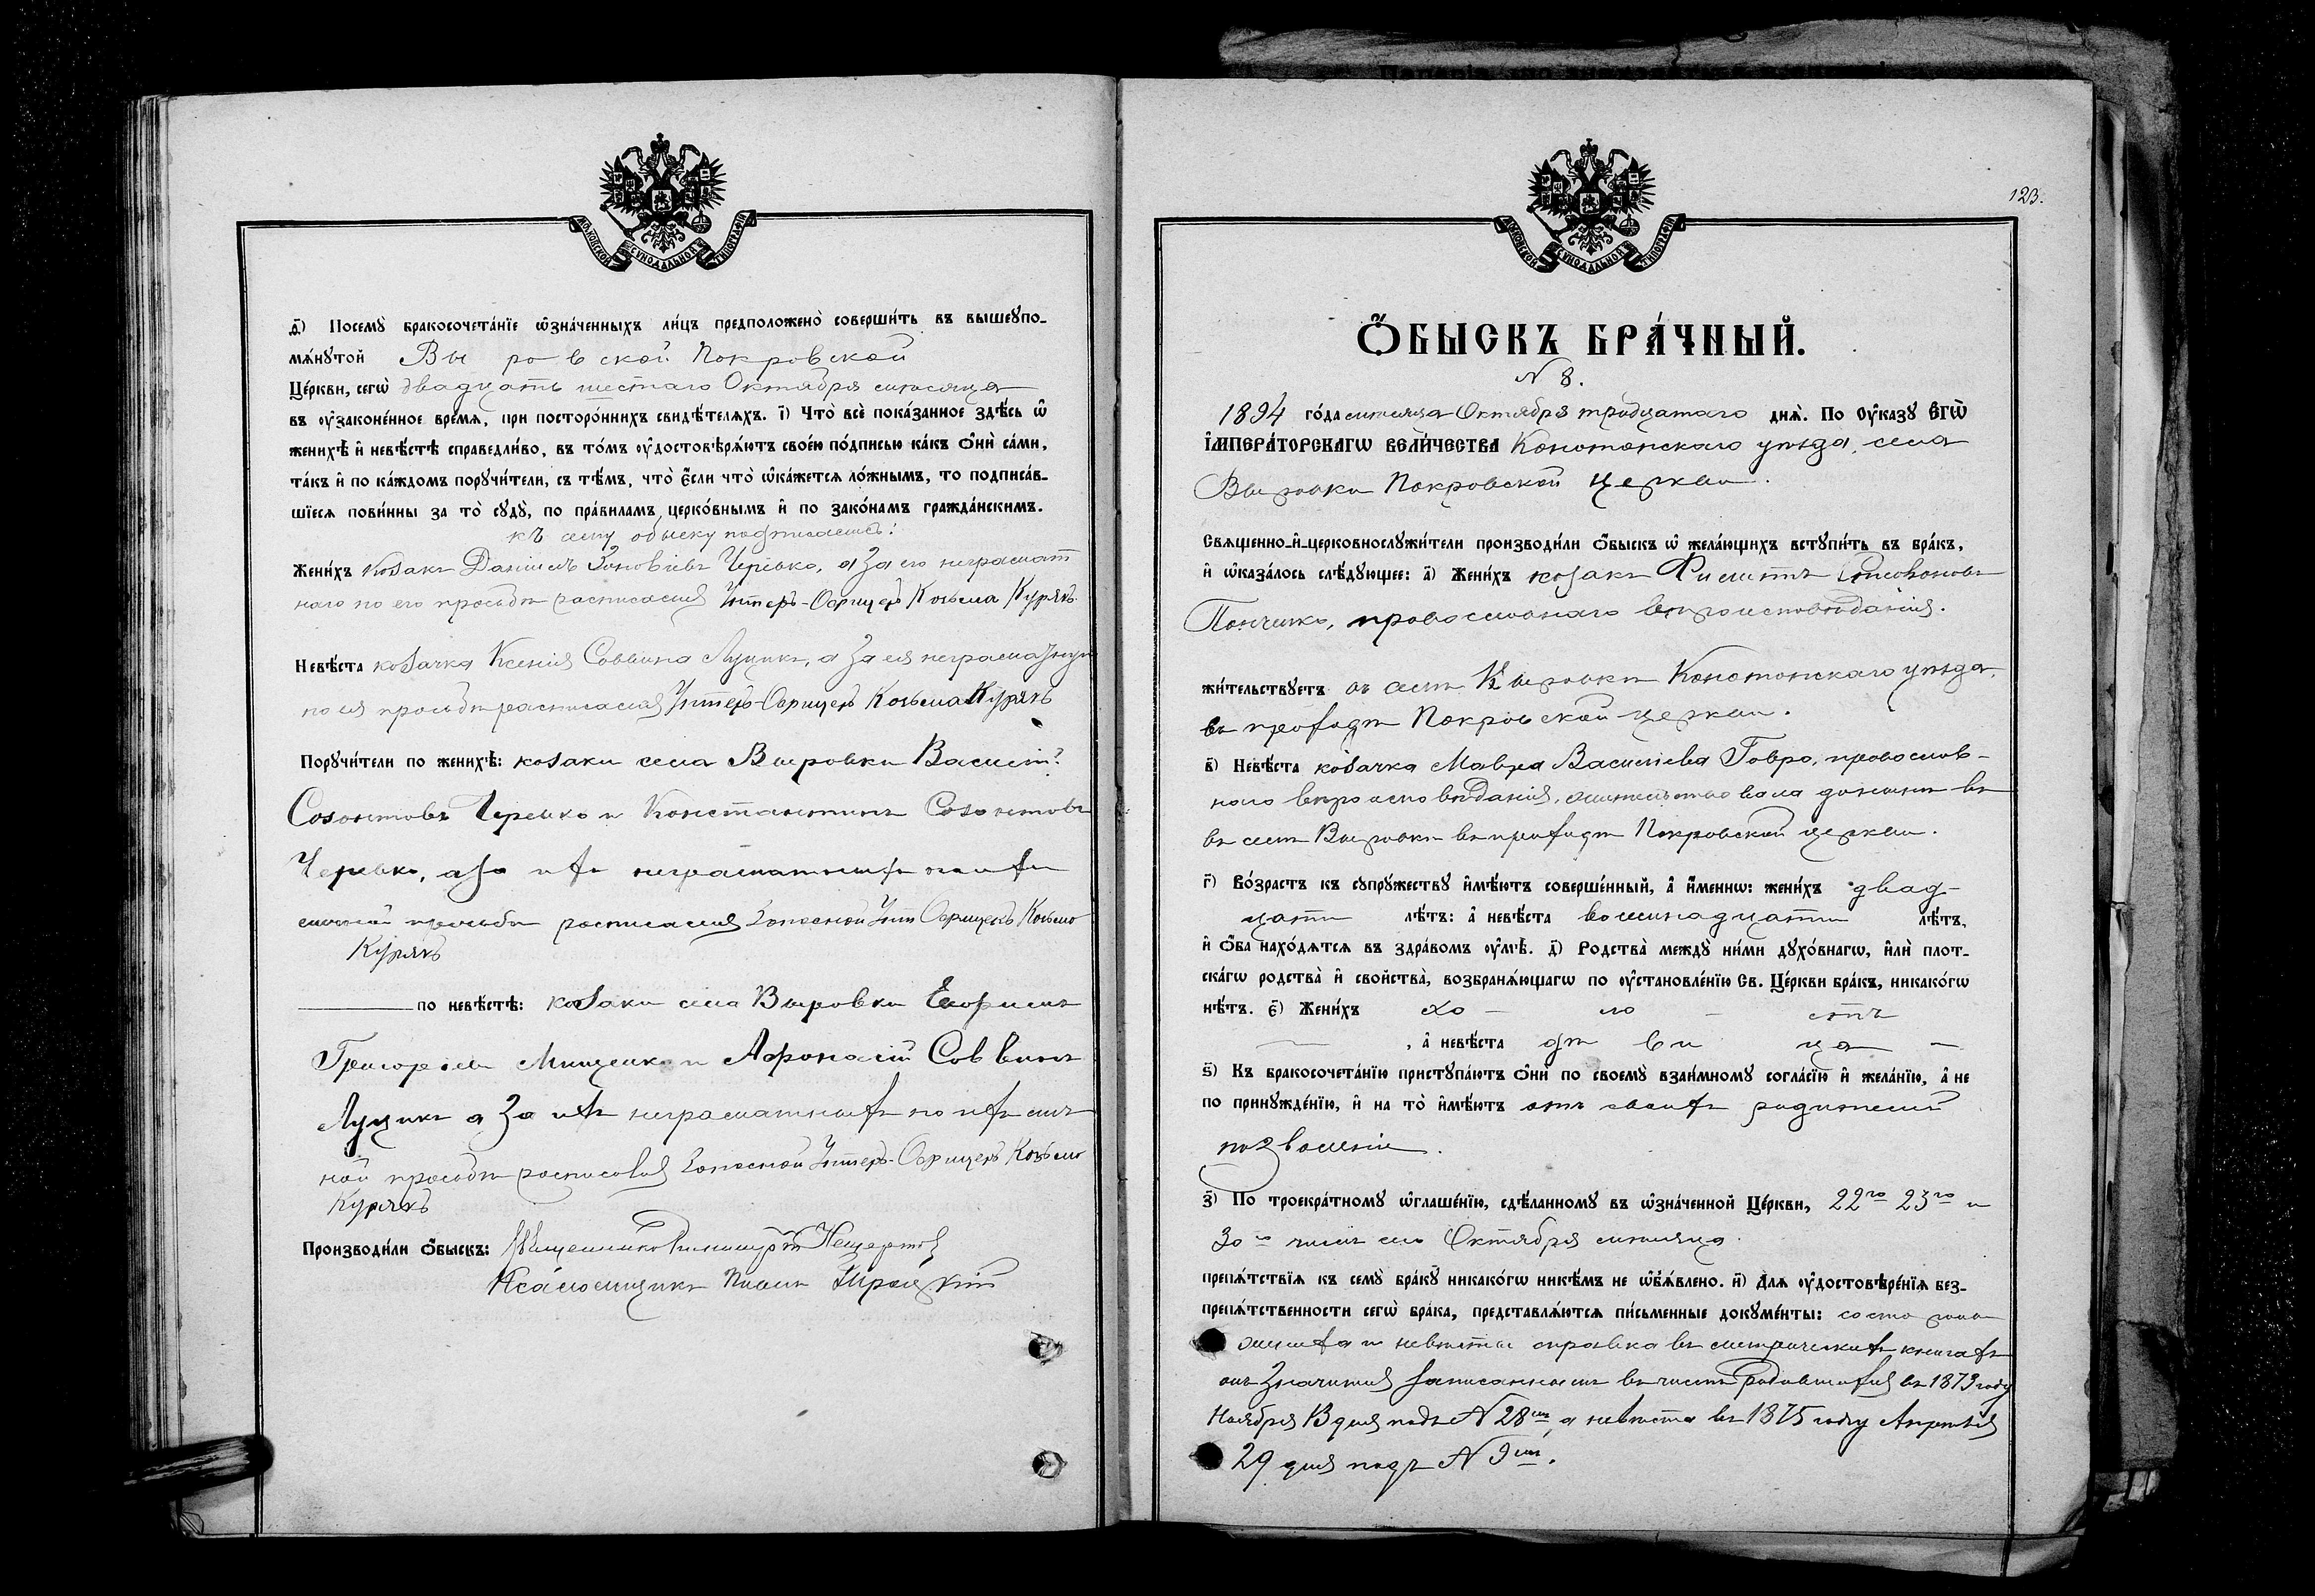 МОСКОВСКОЙ СУНОДАЛЬНОЙ ТИПОГРАФІИ
ѳ҃) Посемꙋ̀ бракосочета́нїе ѡ҆зна́ченныхъ ли́цъ предположено̀ соверши́ть въ вышеꙋпо-
мѧ́нꙋтой Выровской Покровской
Це́ркви, сегѡ̀ двадцать шестаго Октября мѣсяца
въ ᲂу҆законе́нное вре́мѧ, при посторо́ннихъ свидѣ́телѧхъ. і҃) Что̀ всѐ пока́занное здѣ́сь ѡ҆
женихѣ̀ и҆ невѣ́стѣ справедли́во, въ то́мъ ᲂу҆достовѣрѧ́ютъ свое́ю по́дписью ка́къ ѻ҆нѝ са́ми,
та́къ и҆ по ка́ждомъ порꙋчи́тели, съ тѣ́мъ, что̀ є҆́сли что̀ ѡ҆ка́жетсѧ ло́жнымъ, то подписа́в-
шїесѧ пови́нны за то̀ сꙋдꙋ̀, по пра́виламъ церко́внымъ и҆ по зако́намъ гражда́нскимъ.
къ сему обыску подписались:
Жени́хъ козакъ Даніилъ Зиновіевъ Черевко, а за его неграмат
наго по его прозьбѣ росписался Унтеръ-Офицеръ Козьма Курякъ
Невѣ́ста козачка Ксенія Саввина Луцикъ, а за ея неграматную
по ея прозьбѣ расписался Унтеръ-Офицеръ Козьма Курякъ
Порꙋчи́тели по женихѣ̀: козаки села Выровки Василій
Созонтовъ Черевко и Константинъ Созонтовъ
Черевко, а за ихъ неграматныхъ по ихъ
личной прозьбѣ росписался Запасной Унт Офицеръ Козьма
Курякъ
по невѣ́стѣ: козаки села Выровки Ефимъ
Григорьевъ Мищенко и Афонасій Саввинъ
Луцикъ а за ихъ неграматныхъ по ихъ лич
ной прозьбѣ росписовался Запасной Унтеръ-Офицеръ Козьма
Курякъ
Производи́ли ѻ҆́быскъ: Священникъ
Псаломщикъ
123.
МОСКОВСКОЙ СУНОДАЛЬНОЙ ТИПОГРАФІИ
Ѻ҆́БЫСКЪ БРА́ЧНЫЙ.
N 8.
1894 го́да мѣсяца Октября тридцатаго днѧ̀. По Ѹ҆ка́зꙋ Є҆ГѠ̀
І҆МПЕРА́ТОРСКАГѠ ВЕЛИ́ЧЕСТВА Конотопскаго уѣзда, села
Выровки Покровской церкви.
Свѧще́нно-и҆-церковнослꙋжи́тели производи́ли ѻ҆́быскъ ѡ҆ жела́ющихъ встꙋпи́ть въ бра́къ,
и҆ ѡ҆каза́лось слѣ́дꙋющее: а҃) Жени́хъ козакъ Филиппъ
православнаго вѣроисповѣданія.
жи́тельствꙋетъ въ селѣ Выровки Конотопскаго уѣзда,
въ приходѣ Покровской церкви.
в҃) Невѣ́ста козачка Мавра Васильева Говро, православ-
наго вѣроисповѣданія, жительствовала донынѣ въ
въ селѣ Выровки въ приходѣ Покровской церкви.
г҃) Во́зрастъ къ сꙋпрꙋ́жествꙋ и҆мѣ́ютъ соверше́нный, а҆ и҆́меннѡ: жени́хъ двад-
цати лѣ́тъ: а҆ невѣ́ста восминадцати лѣ́тъ,
и҆ ѻ҆́ба нахо́дѧтсѧ въ здра́вомъ ᲂу҆мѣ̀. д҃) Родства̀ междꙋ̀ ни́ми дꙋхо́внагѡ, и҆лѝ плот-
ска́гѡ родства̀ и҆ сво́йства, возбранѧ́ющагѡ по ᲂу҆становле́нїю Св. Це́ркви бра́къ, никако́гѡ
нѣ́тъ. є҃) Жени́хъ хо - ло - стъ
, а҆ невѣ́ста дѣ ви ца -
ѕ҃) Къ бракосочета́нїю пристꙋпа́ютъ ѻ҆нѝ по своемꙋ̀ взаи́мномꙋ согла́сїю и҆ жела́нїю, а҆ не
по принꙋжде́нїю, и҆ на то̀ и҆мѣ́ютъ отъ своихъ родителей
позволеніе.
з҃) По троекра́тномꙋ ѡ҆глаше́нїю, сдѣ́ланномꙋ въ ѡ҆зна́ченной Це́ркви, 22го 23го и
30го числъ Октября мѣсяца.
препѧ́тствїѧ къ семꙋ̀ бра́кꙋ никако́гѡ никѣ́мъ не ѡ҆б̾ѧ́влено. и҃) Длѧ ᲂу҆достовѣре́нїѧ без-
препѧ́тственности сегѡ̀ бра́ка, представлѧ́ютсѧ пи́сьменные докꙋме́нты: состороны
жениха и невѣсты справка въ метрическихъ книгахъ
онъ значится записаннымъ въ числѣ родившихся въ 1873 году
Ноября 13 дня подъ N 28мъ, а невѣста въ 1875 году Апрѣля
29 дня подъ N 9мъ.